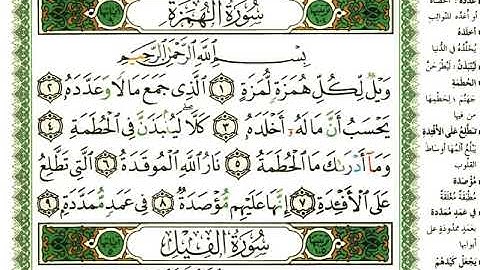 سُورَةُ الْهُمَزَةِ
بِسْمِ اللَّهِ الرَّحْمَٰنِ الرَّحِيمِ
وَيْلٌ لِّكُلِّ هُمَزَةٍ لُّمَزَةٍ ١ الَّذِي جَمَعَ مَالًا وَعَدَّدَهُ ٢
يَحْسَبُ أَنَّ مَالَهُ أَخْلَدَهُ ٣ كَلَّا لَيُنبَذَنَّ فِي الْحُطَمَةِ ٤
وَمَا أَدْرَاكَ مَا الْحُطَمَةُ ٥ نَارُ اللَّهِ الْمُوقَدَةُ ٦ الَّتِي تَطَّلِعُ
عَلَى الْأَفْئِدَةِ ٧ إِنَّهَا عَلَيْهِم مُّؤْصَدَةٌ ٨ فِي عَمَدٍ مُّمَدَّدَةٍ ٩
سُورَةُ الْفِيلِ
أو أعدّه للنوائب
أخلده
يخلّده في الدنيا
لينبذن: ليطرحنّ
الحطمة
جهنم؛ لحطمها
من فيها
تطّلع على الأفئدة
يبلغ ألمها أوساط
القلوب
مؤصدة
مطبقة مغلقة
في عمد ممددة
بعمد ممدودة على
أبوابها
يجعل كيدهم